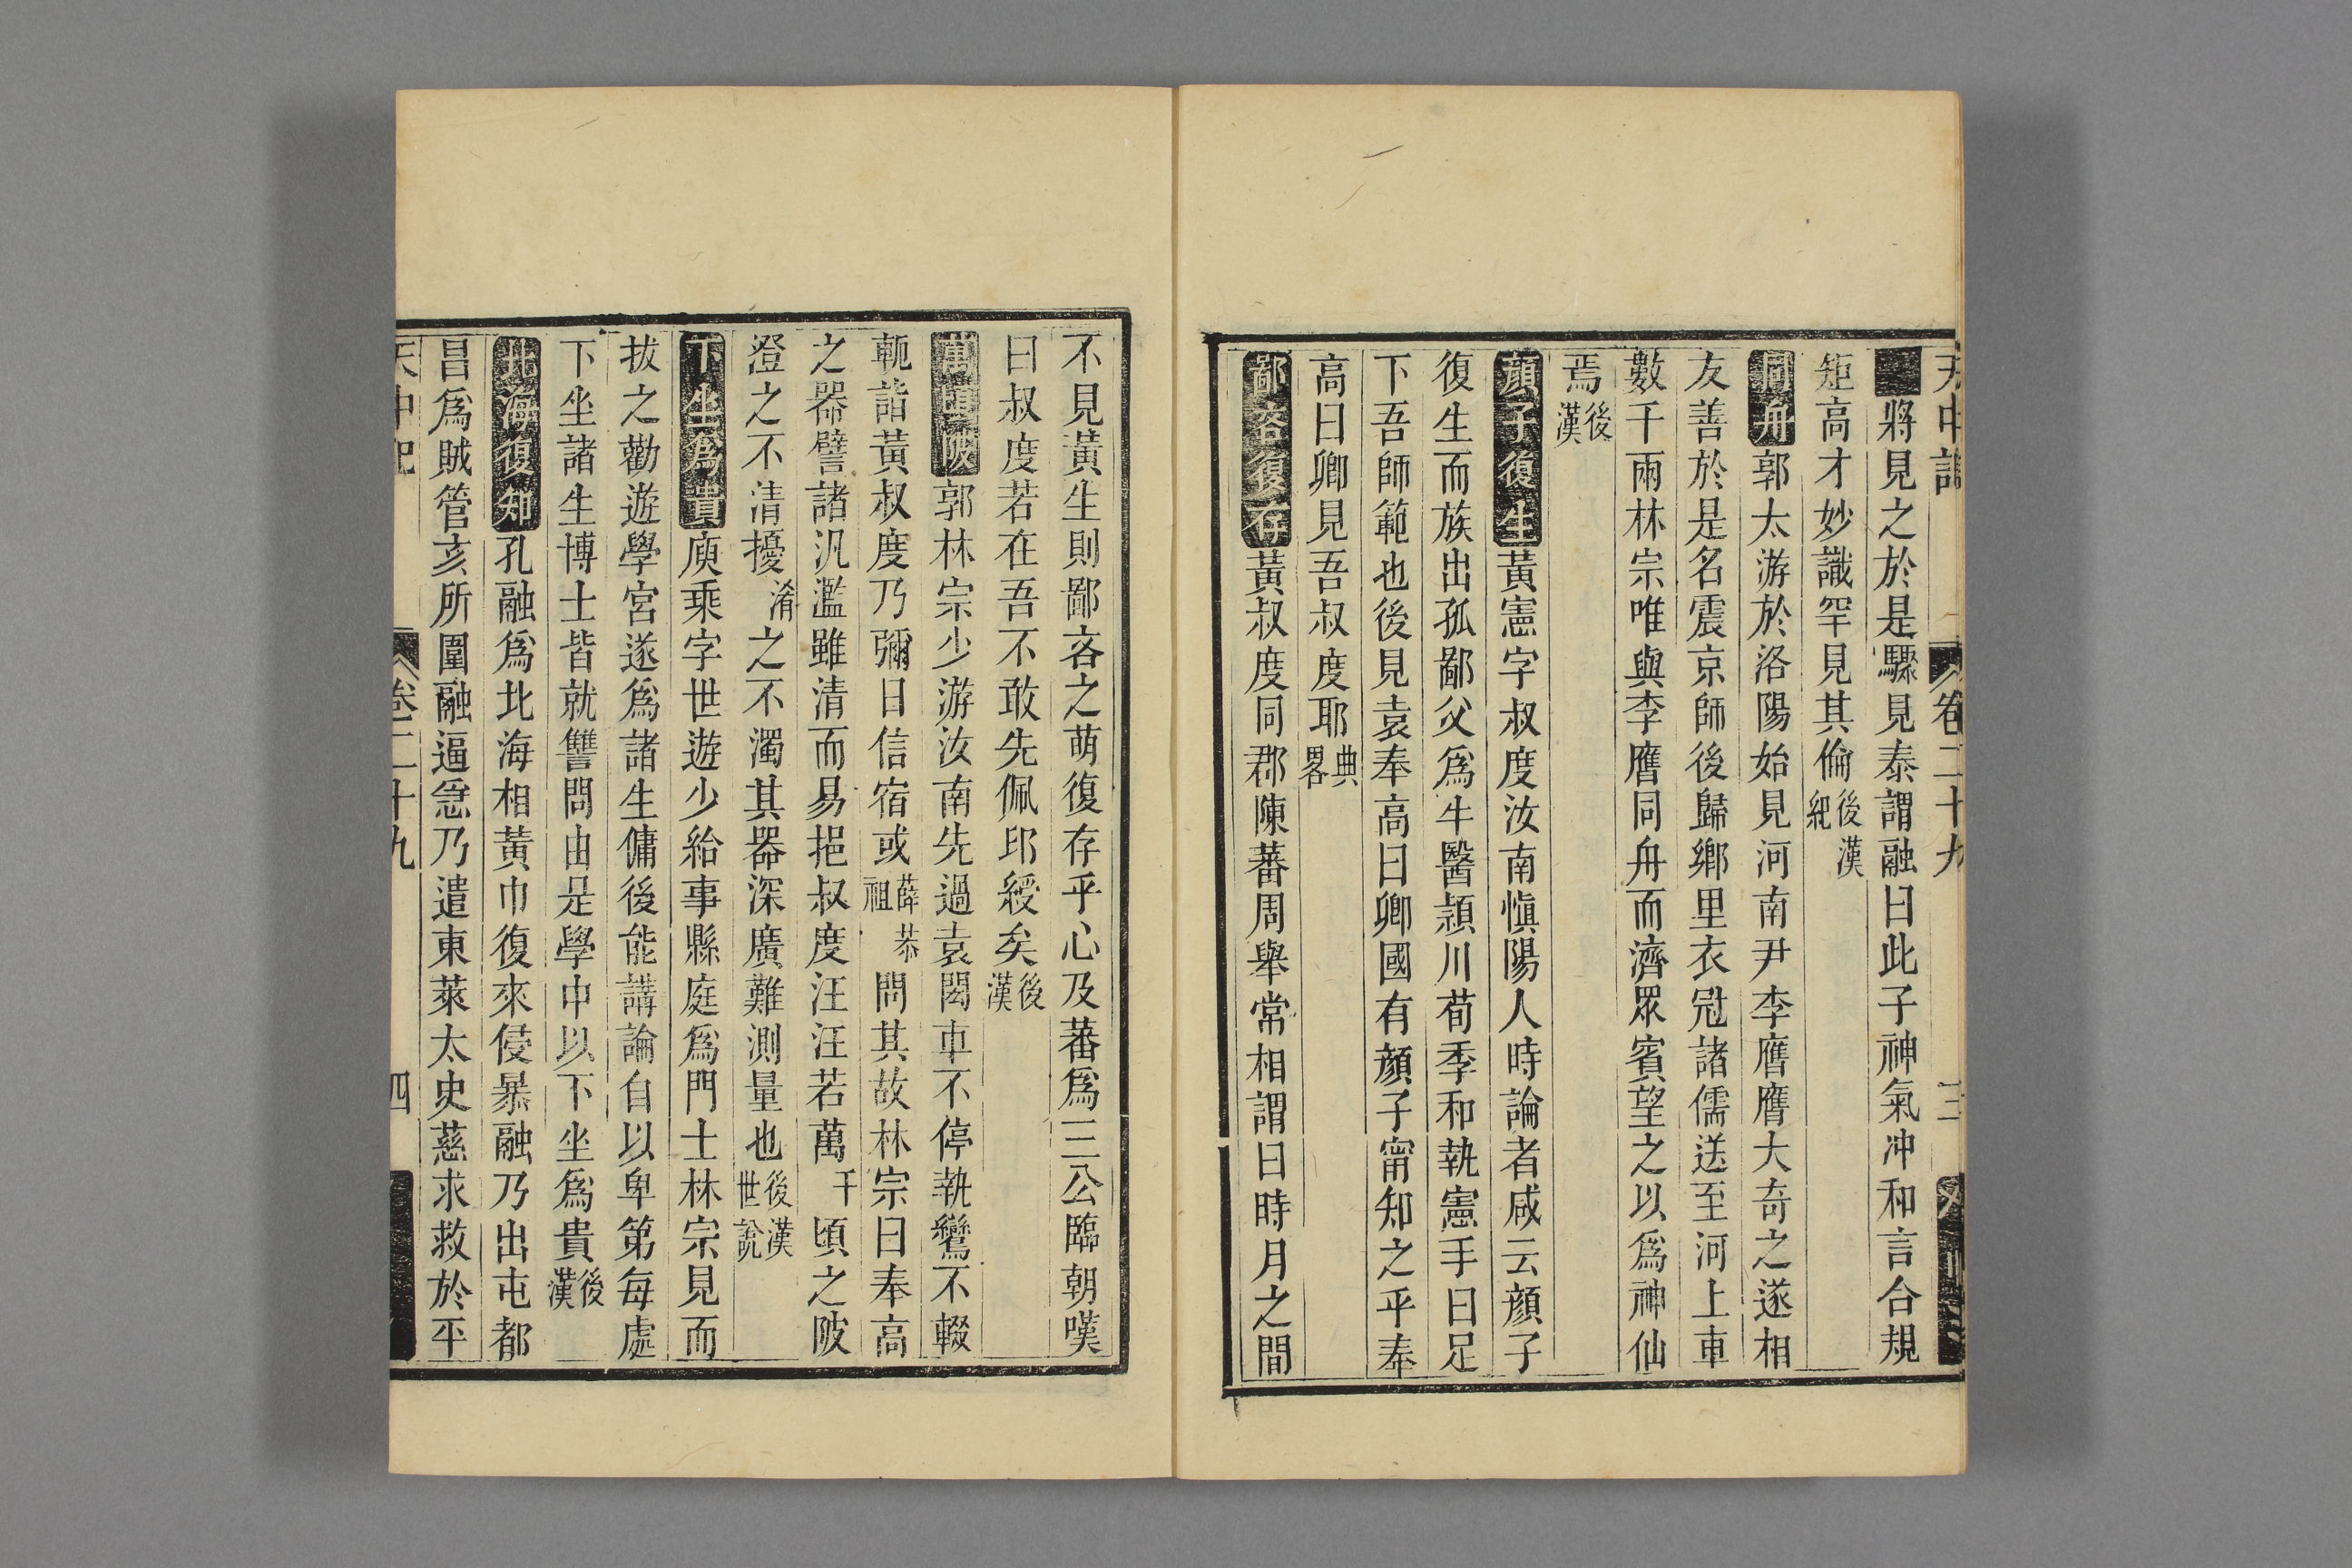 天中記 卷二十九 三
將見之於是驟見泰謂融曰此子神氣冲和言合規
矩高才妙識罕見其倫後漢紀
同舟郭太游於洛陽始見河南尹李膺膺大奇之遂相
友善於是名震京師後歸鄉里衣冠諸儒送至河上車
數千兩林宗唯與李膺同舟而濟眾賓望之以爲神仙
焉後漢
顏子復生黃憲字叔度汝南愼陽人時論者咸云顏子
復生而族出孤鄙父爲牛醫潁川荀季和執憲手曰足
下吾師範也後見袁奉高曰卿國有顏子甯知之乎奉
高曰卿見吾叔度耶典畧
鄙吝復存黃叔度同郡陳蕃周舉常相謂曰時月之間
不見黃生則鄙吝之萌復存乎心及蕃爲三公臨朝嘆
曰叔度若在吾不敢先佩印綬矣後漢
萬頃陂郭林宗少游汝南先過袁閎車不停執鸞不輟
軛詣黃叔度乃彌日信宿或薛恭祖問其故林宗曰奉高
之器譬諸汎濫雖清而易挹叔度汪汪若萬千頃之陂
澄之不清擾淆之不濁其器深廣難測量也後漢世說
下坐爲貴庾乘字世遊少給事縣庭爲門士林宗見而
拔之勸遊學宮遂爲諸生傭後能講論自以卑第每處
下坐諸生博士皆就讐問由是學中以下坐爲貴後漢
北海復知孔融爲北海相黃巾復來侵暴融乃出屯都
昌爲賊管亥所圍融逼急乃遣東萊太史慈求救於平
天中記 卷二十九 四